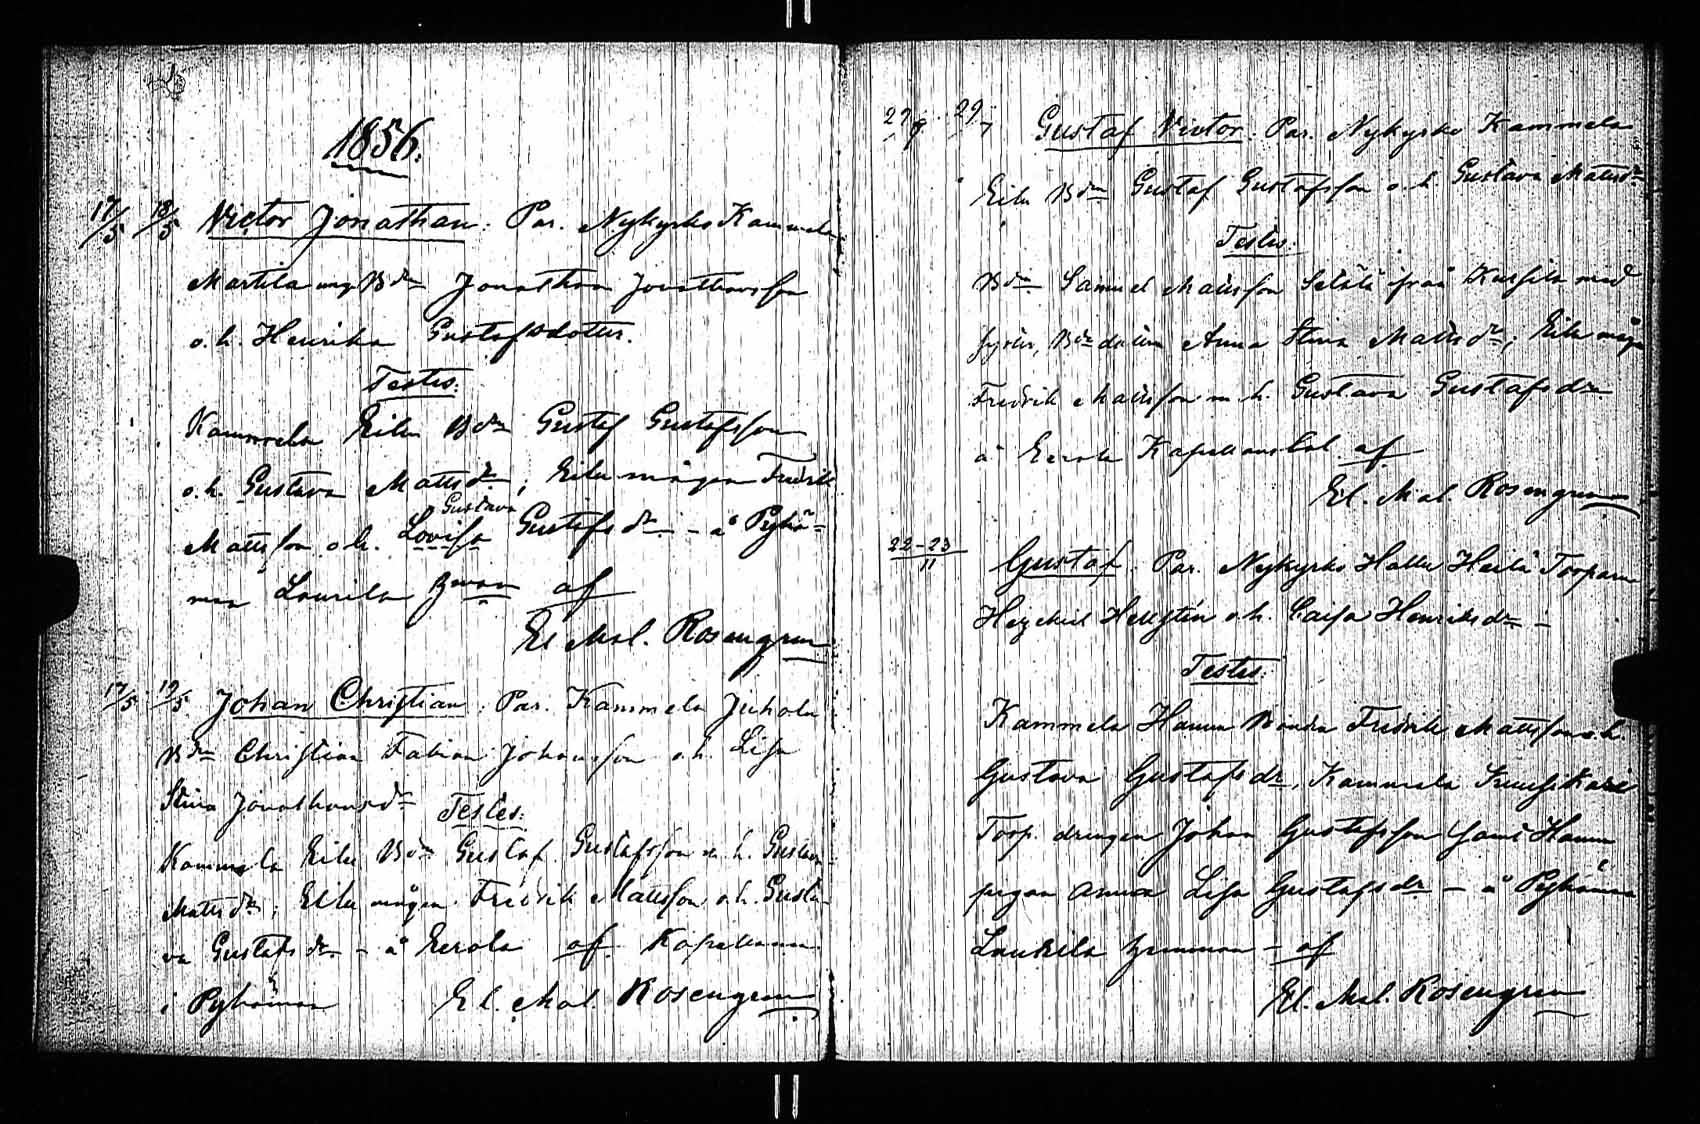 1856.
17/5 18/5 Victor Jonathan. Par. Nykyrko Kammela
Martila ung Bdn Jonathan Jonathansson
o. h. Henrika Gustafsdotter.
Testes:
Kammela Eilu Bdn Gustaf Gustafsson
o. h. Gustava Mattsdr; Eilu mågen Fredrik
Gustava
Mattsson o. h. Lovisa Gustafsdr - å Pyhä=
maa Laurila af
El. Mal. Rosengren
17/5 19/5 Johan Christian. Par. Kammela Juhola
Bdn Christian Fabian Johansson o. h. Lisa
Stina Jonathansdr Testes:
Kammela Eilu Bdn Gustaf Gustafsson o. h. Gustava
Mattsdr; Eilu mågen Fredrik Mattsson o. h. Gusta-
va Gustafsdr - å Eerola af Kapellanen
i Pyhämaa El. Mal. Rosengren
Gustaf Victor. Par. Nykyrko Kammela
Eilu Bdn Gustaf Gustafsson o. h. Gustava Mattsdr
Testes:
Bdn Samuel Mattsson från med
Anna Stina Mattsdr; Eilu mågen
Fredrik Mattsson m. h. Gustava Gustafsdr
å Eerola af
El. Mal. Rosengren
22-23/11 Gustaf. Par. Nykyrko Torparen
Hezekiel Hellstén o. h. Caisa Henriksdr -
Testes:
Kammela Hannu Bonden Fredrik Mattsson o. h.
Gustava Gustafsdr, Kammela
Torp. drengen Johan Gustafsson samt Hannu
pigan Anna Lisa Gustafsdr - å Pyhämaa
Laurila - af
El. Mal. Rosengren